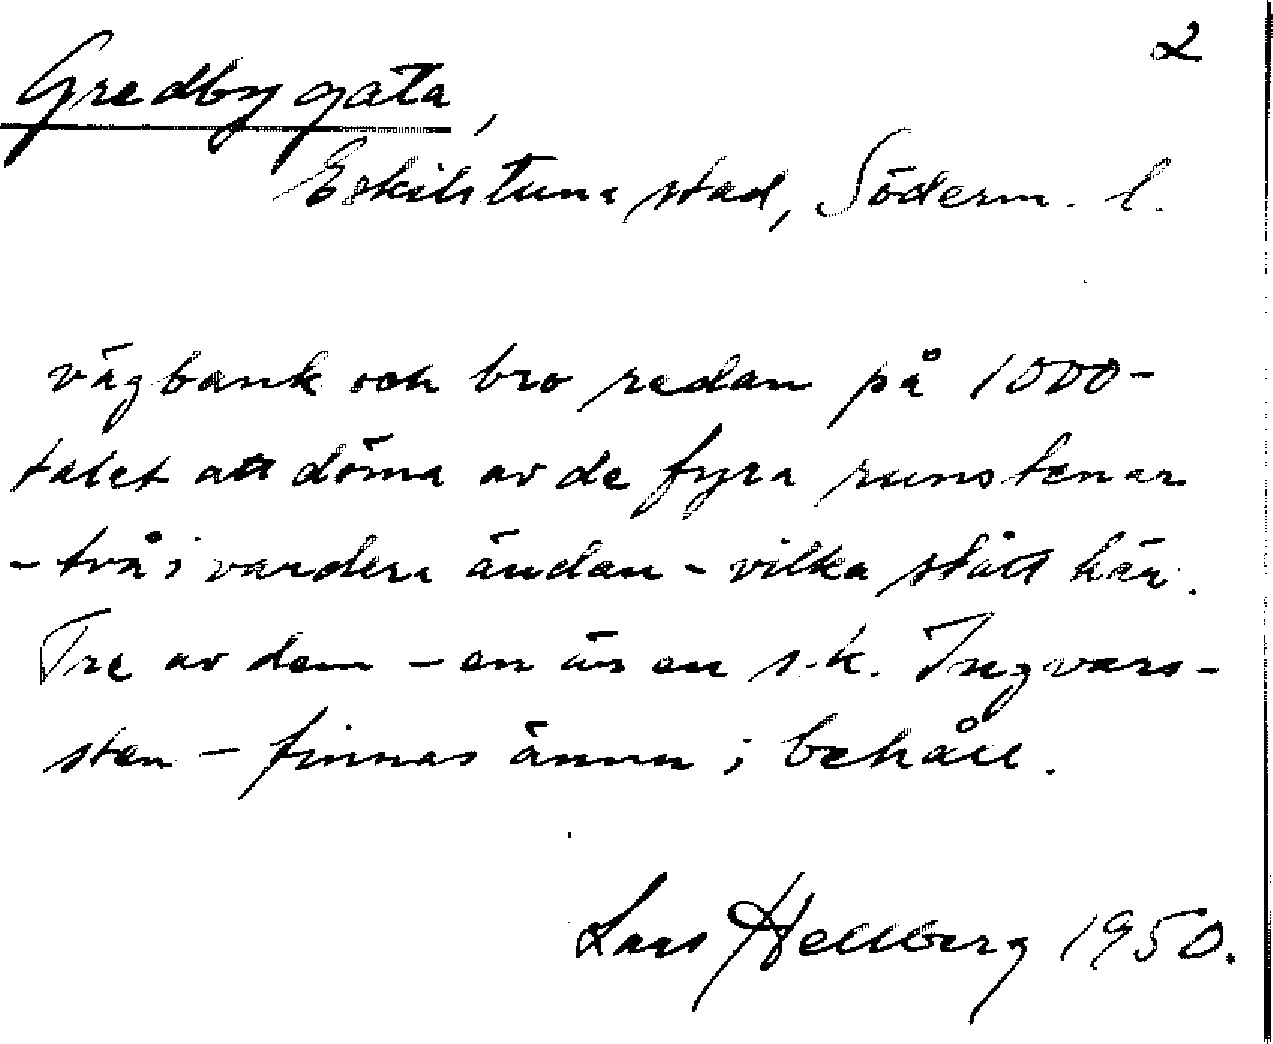 2
Gredby gata,
Eskilstuna stad, Söderm. l.
vägbank och bro redan på 1000-
talet att döma av de fyra runstenar
- två i vardera ändan - vilka stått här.
Tre av dem - en är en s.k. Ingvars-
sten - finnas ännu i behåll.
Lars Hellberg 1950.